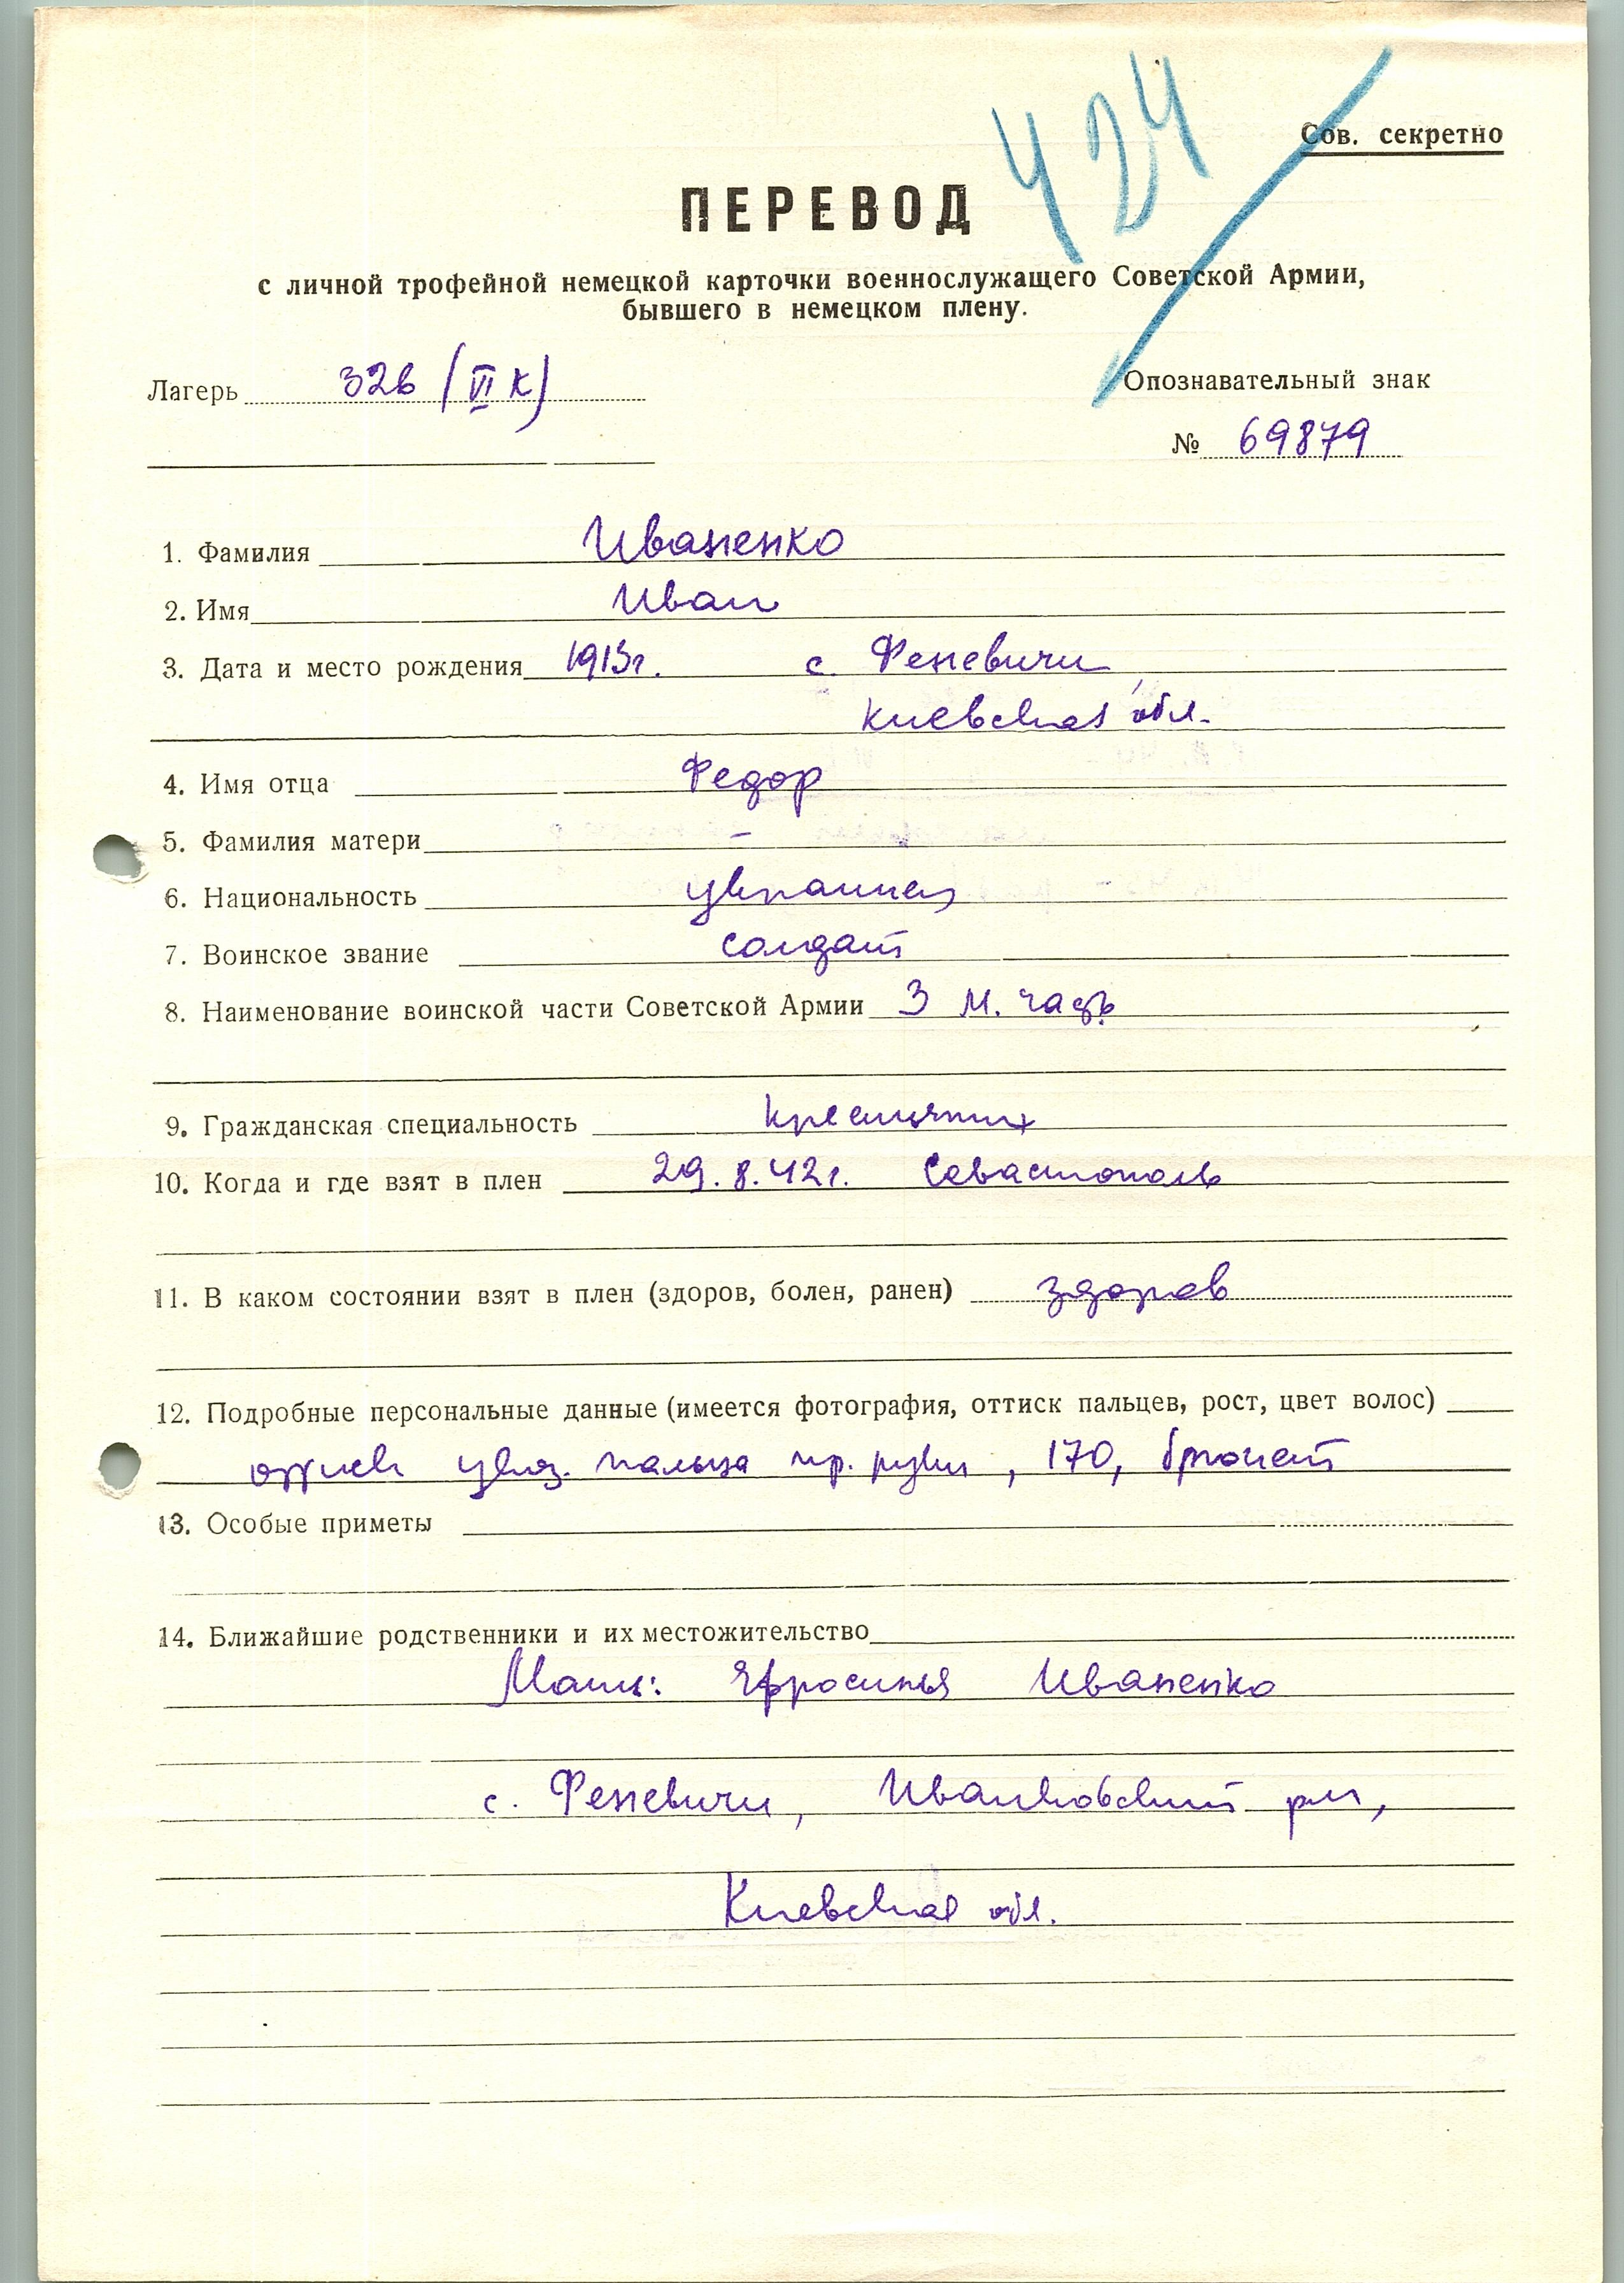 424
Сов. секретно
ПЕРЕВОД
с личной трофейной немецкой карточки военнослужащего Советской Армии,
бывшего в немецком плену.
Лагерь 326 (VI К)
Опознавательный знак
№ 69879
1. Фамилия Иваненко
2. Имя Иван
3. Дата и место рождения 1913г. с. Феневичи,
Киевская обл.
4. Имя отца Федор
5. Фамилия матери –
6. Национальность украинец
7. Воинское звание солдат
8. Наименование воинской части Советской Армии 3 М.
9. Гражданская специальность крестьянин
10. Когда и где взят в плен 29.8.42г. Севастополь
11. В каком состоянии взят в плен (здоров, болен, ранен) здоров
12. Подробные персональные данные (имеется фотография, оттиск пальцев, рост, цвет волос)
оттиск указ. пальца пр. руки, 170, брюнет
13. Особые приметы
14. Ближайшие родственники и их местожительство
Мать: Ефросинья Иваненко
с. Феневичи, Иванковский р-н,
Киевская обл.